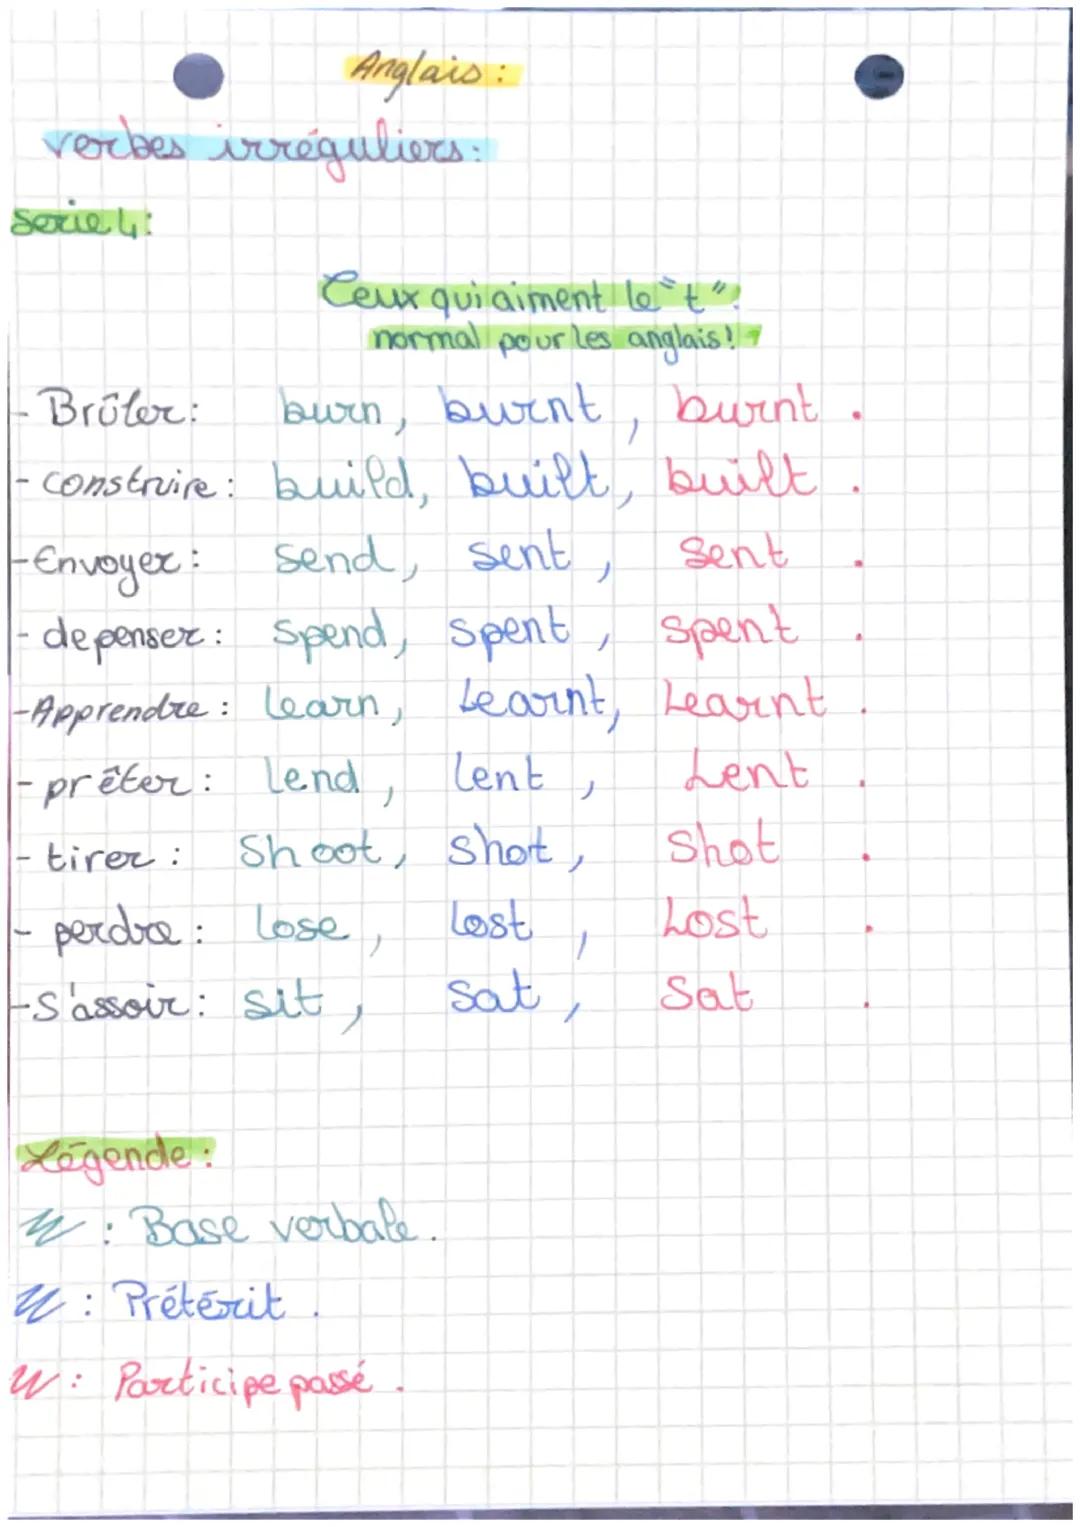 Anglais :
verbes irréguliers :
Serie 4 :
Ceux qui aiment le "t" :
normal pour les anglais !
- Brûler : burn, burnt, burnt .
- construire : build, built, built .
- Envoyer : send, sent, sent .
- depenser : spend, spent, spent .
- Apprendre : learn, Learnt, Learnt .
- prêter : lend, lent, Lent .
- tirer : Shoot, shot, Shot .
- perdre : lose, lost, Lost .
- S'assoir : sit, sat, Sat .
Légende :
: Base verbale .
: Prétérit .
: Participe passé .